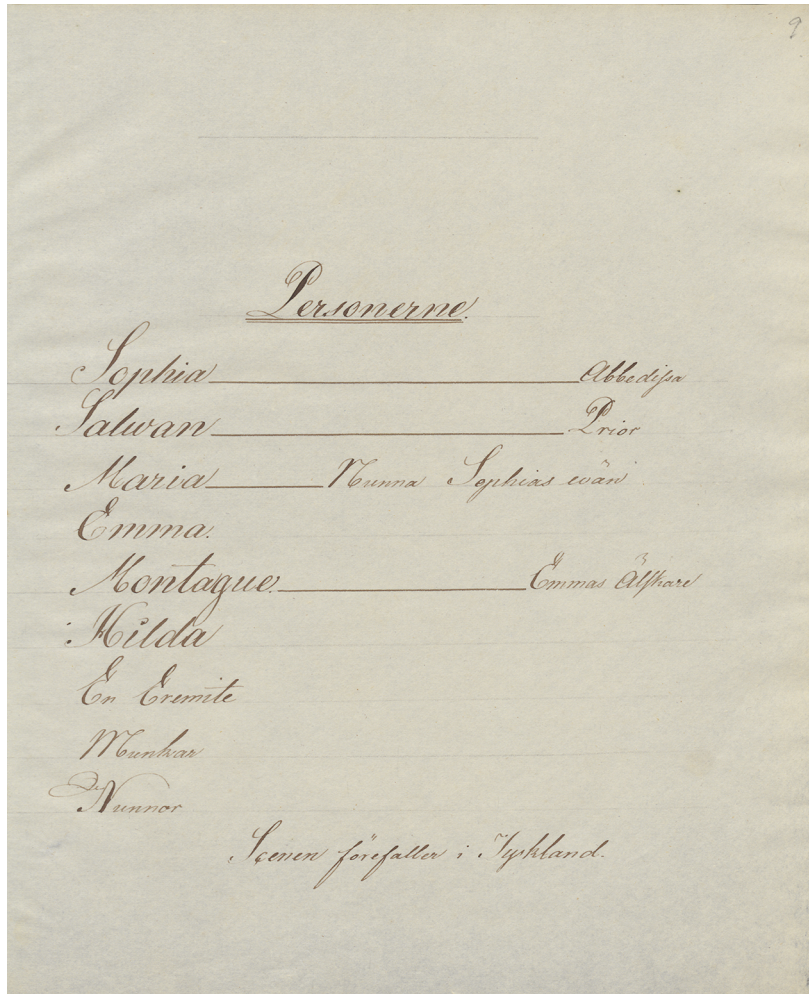 9
Personerne.
Sophia ___ Abbedissa
Salwan ___ Prior
Maria ___ Nunna Sophias wän
Emma.
Montague. ___ Emmas Älskare
Hilda
En Eremite
Munkar
Nunnor
Scenen förefaller i Tyskland.